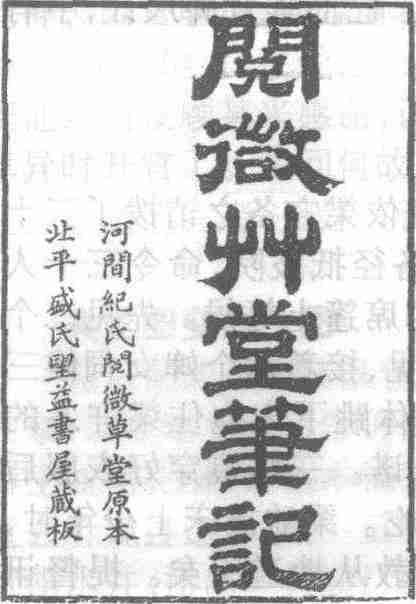 閱微艸堂筆記
河間紀氏閱微草堂原本
北平盛氏望益書屋蔵板